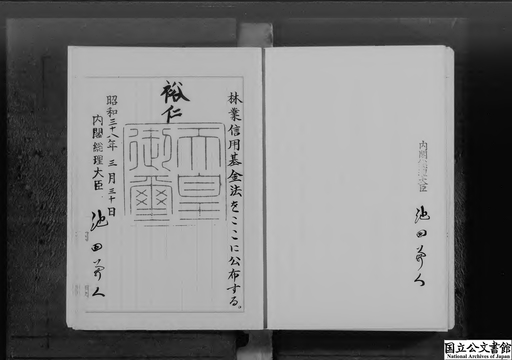 内閣総理大臣
池田勇人
林業信用基金法をここに公布する。
裕仁
天皇御璽
昭和三十八年三月三十日
内閣総理大臣
池田勇人
国立公文書館
National Archives of Japan